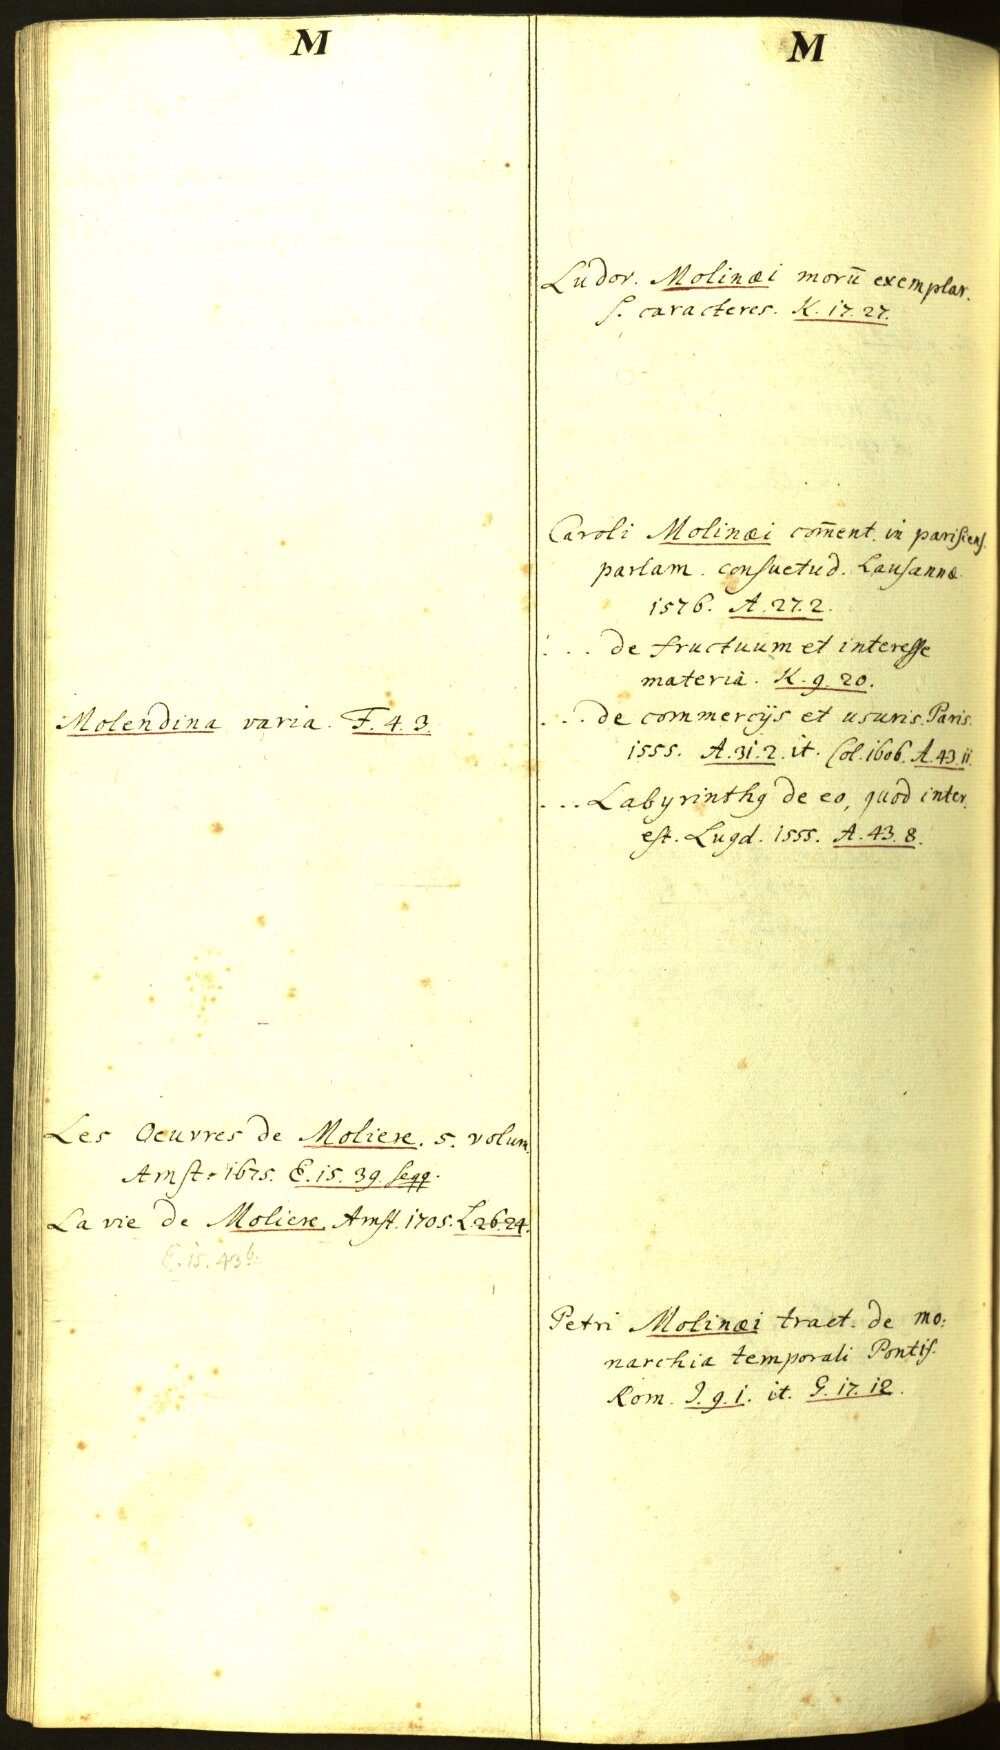 M
Molendina varia. F. 4. 3.
Les Oeuvres de Moliere. 5. volum.
Amst. 1675. E. 15. 39. seqq.
La vie de Moliere. Amst. 1705. L. 26. 24.
E. 15. 43b.
M
Ludov. Molinæi morū exemplar.
s. caracteres. K. 17. 27.
Caroli Molinæi com̄ent. in parisiens.
parlam. consuetud. Lausannæ.
1576. A. 27. 2.
... de fructuum et interesse
materiâ. K. 9. 20.
... de commercijs et usuris. Paris.
1555. A. 31. 2. it. Col. 1606. A. 43. 11.
... Labyrinthq de eo, quod inter.
est. Lugd. 1555. A. 43. 8.
Petri Molinæi tract. de mo:
narchia temporali Pontif.
Rom. I. 9. 1. it. G. 17. 12.